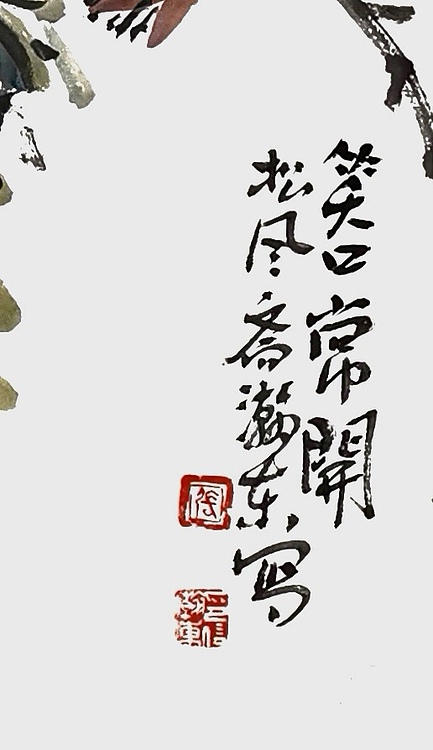 笑口常開
松风斋瀚东写